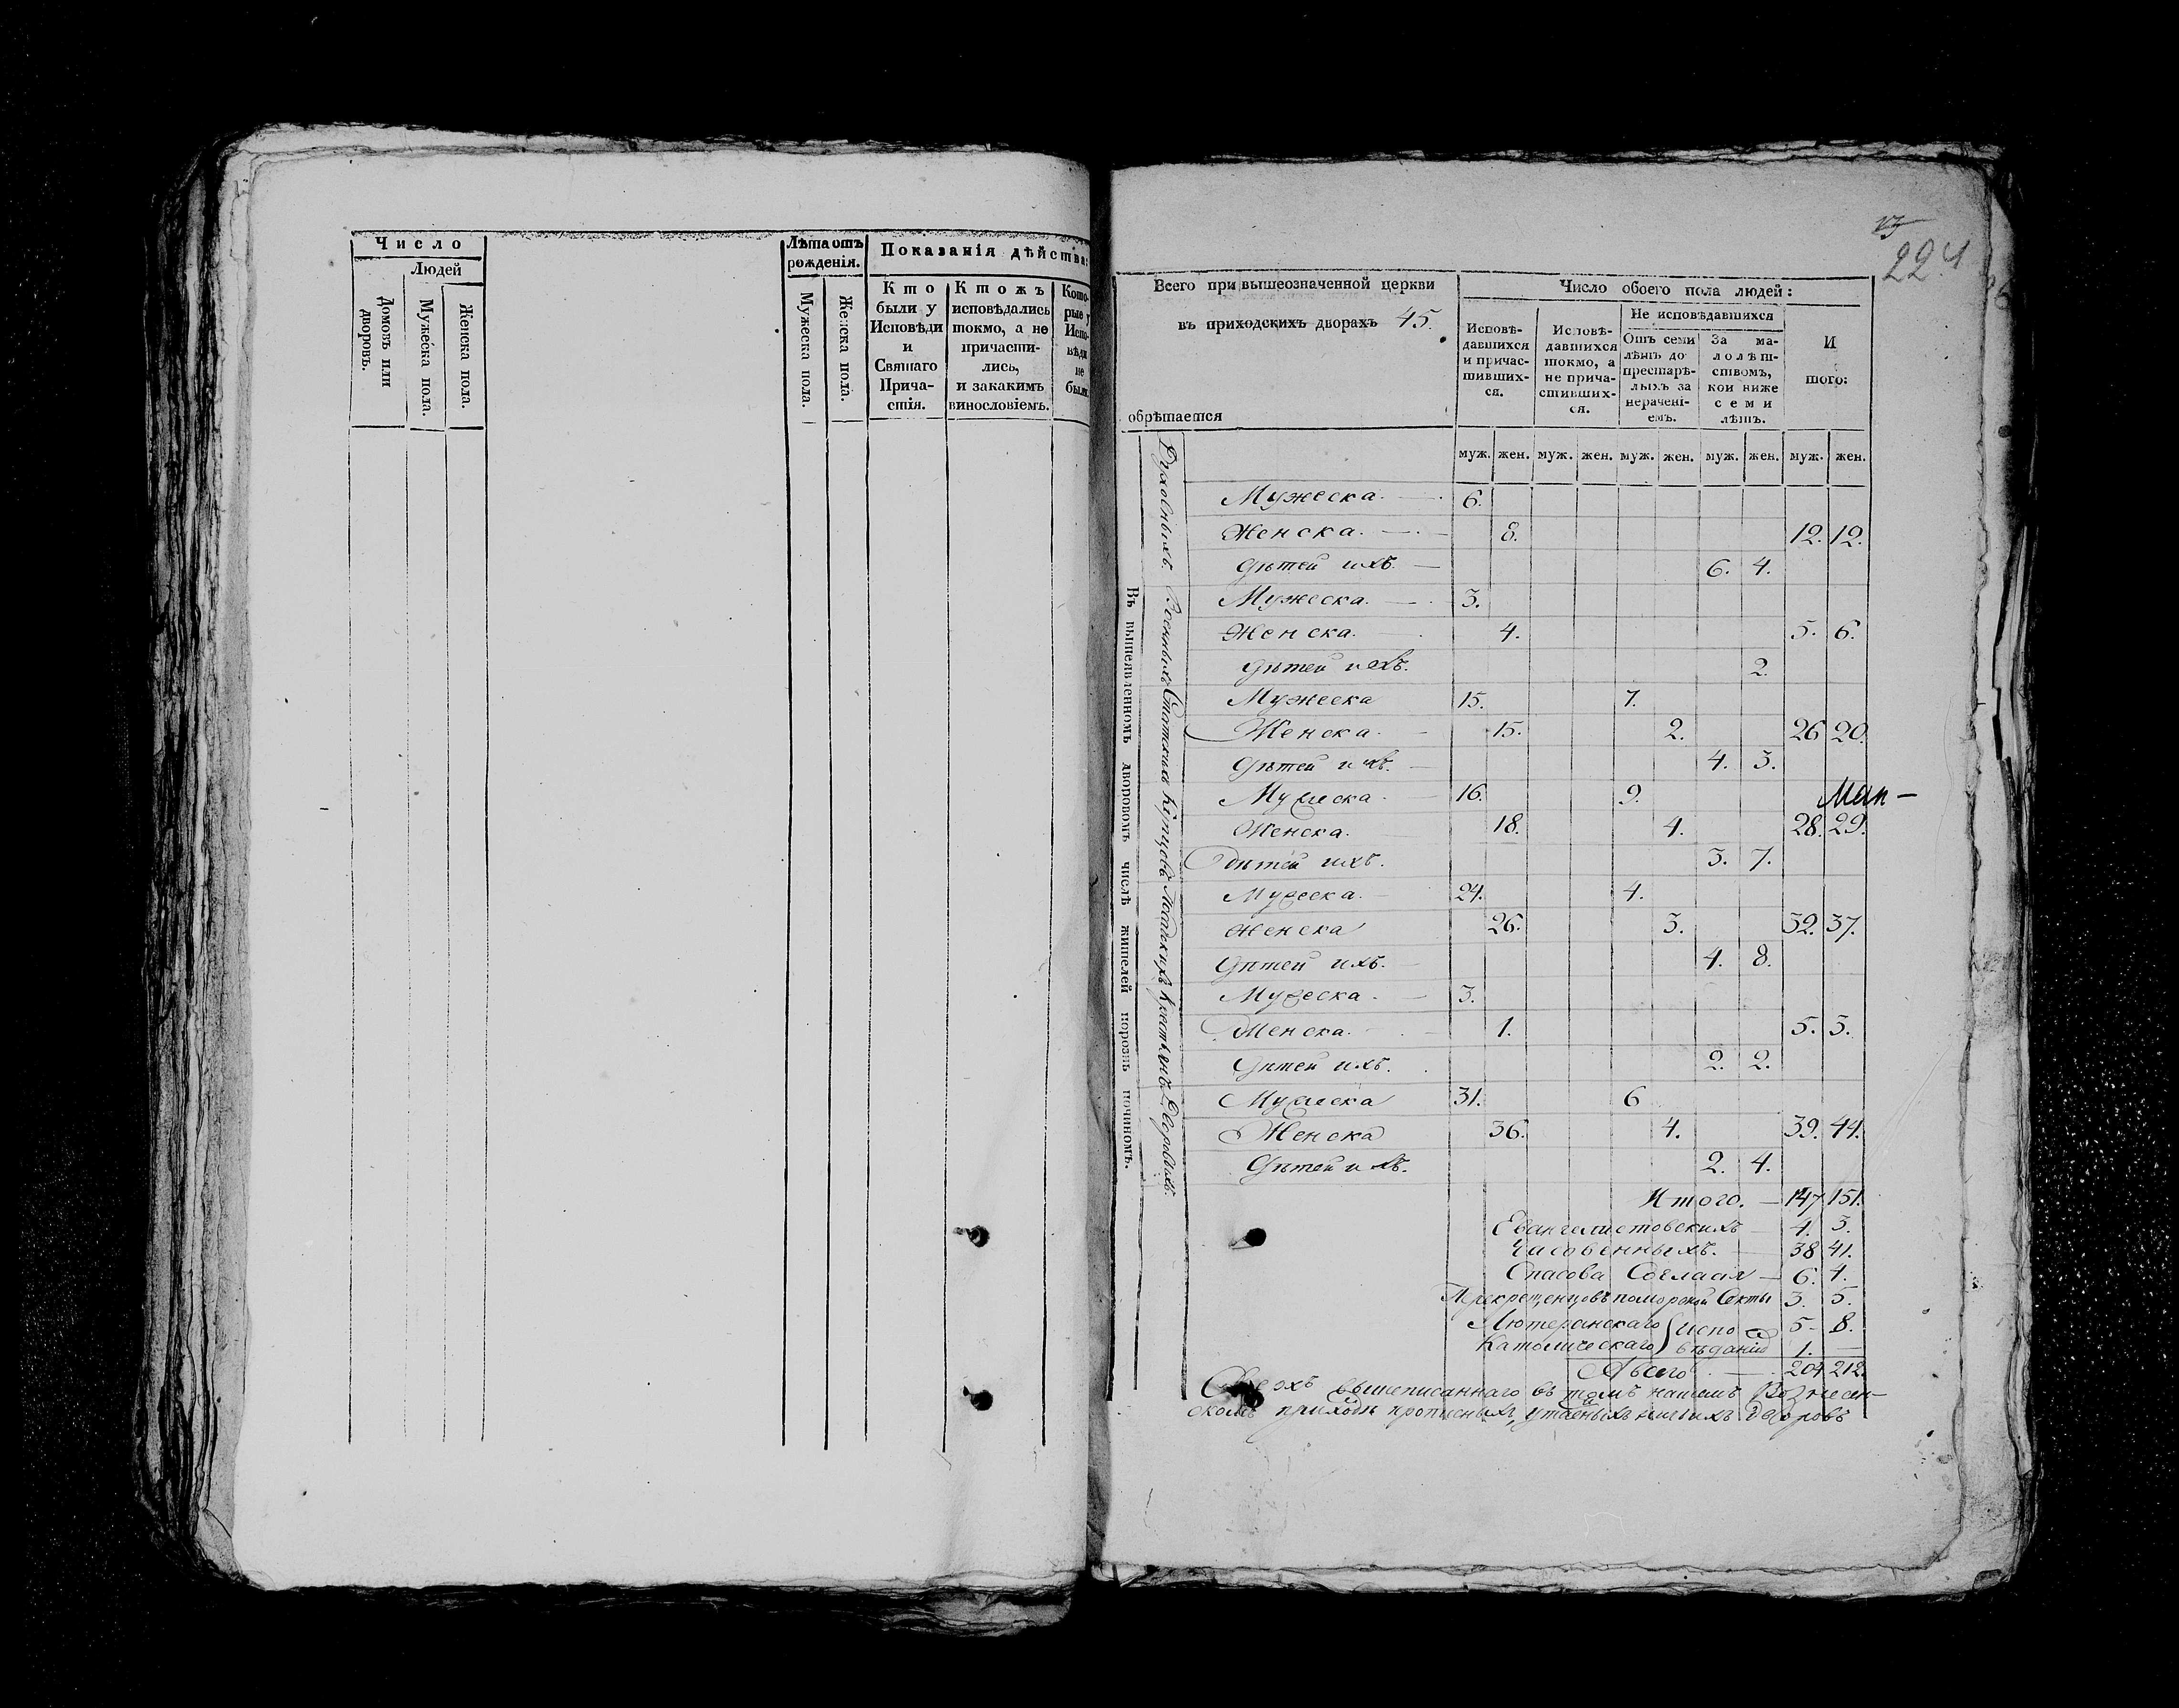 Число
Людей
Домовъ или дворовъ.
Мужеска пола.
Женска пола.
Лѣта отъ
рожденія.
Мужеска пола.
Женска пола.
Показанія дѣйства:
Кто
были у
Исповѣди
и
Святаго
Прича-
стія.
Ктожъ
исповѣдались
токмо, а не
причасти-
лись,
и закакимъ
винословіемъ.
Кото-
рые у
Испо-
вѣди
не
были
224
Всего при вышеозначенной церкви
въ приходскихъ дворахъ 45.
обрѣтается
Число обоего пола людей:
Исповѣ-
давшихся
и причас-
тивших-
ся.
Исповѣ-
давшихся
токмо, а
не прича-
стивших-
ся.
Не исповѣдавшихся
Отъ семи
лѣтъ до
престарѣ-
лыхъ за
нерачені-
емъ.
За ма-
лолѣт-
ствомъ,
кои ниже
семи
лѣтъ.
И
того:
муж. жен. муж. жен. муж. жен. муж. жен. муж. жен.
Въ вышеявленномъ дворовомъ числѣ жителей порознь починомъ.
Духовныхъ. Военныхъ Статскихъ Купцовъ Посадскихъ Крестьянъ Дворовыхъ.
Мужеска. 6.
Женска. 8. 12. 12.
Дѣтей ихъ. 6. 4.
Мужеска. 3.
Женска. 4. 5. 6.
Дѣтей ихъ. 2.
Мужеска 15. 7.
Женска. 15. 2. 26 20.
Дѣтей ихъ. 4. 3.
Мужеска 16. 9.
Женска. 18. 4. 28. 29.
Дѣтей ихъ. 3. 7.
Мужеска. 24. 4.
Женска 26. 3. 32. 37.
Дѣтей ихъ. 4. 8.
Мужеска. 3.
Женска. 1. 5. 3.
Дѣтей ихъ. 2. 2.
Мужеска 31. 6
Женска 36. 4. 39. 44.
Дѣтей ихъ. 2. 4.
Итого. — 147 151.
Евангелистовскихъ — 4. 3.
Часовенныхъ. — 38 41.
Спасова Согласія — 6. 4.
Перекрещенцовъ поморской Секты 3. 5.
Лютеранскаго } Испо 5 — 8.
Католическаго } вѣданія 1. —
Авсего — 204 212.
Сверхъ вышеписаннаго въ томъ нашемъ Вознесен-
скомъ приходѣ прописныхъ, утаенныхъ ничіихъ дворовъ